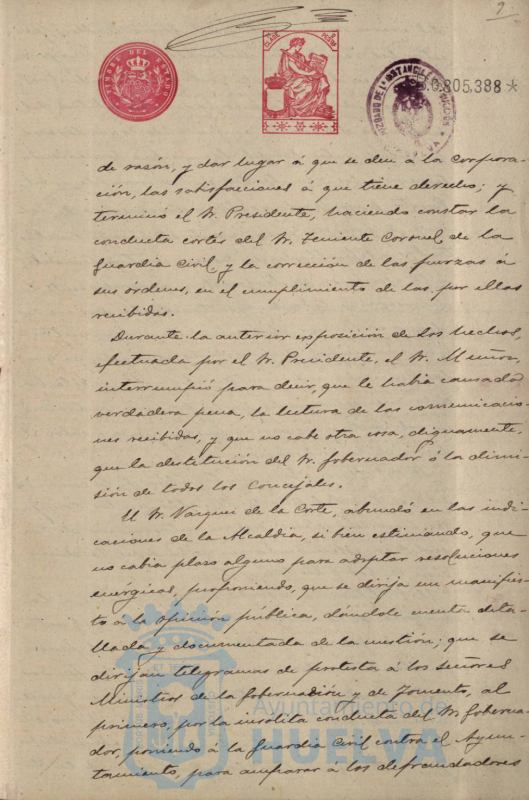 9
TIMBRE DEL ESTADO
CLASE
0.805,388
JUZGADO DE 1ª INSTANCIA
de razón, y dar lugar á que se den á la corpora-
ción, las satisfacciones á que tiene derecho; y
terminó el Sr. Presidente, haciendo constar la
conducta cortés del Sr. Teniente Coronel de la
Guardia Civil y la corrección de las fuerzas á
sus órdenes, en el cumplimiento de las, por ellas
recibidas.
Durante la anterior exposición de los hechos,
efectuada por el Sr. Presidente, el Sr. Muñoz,
interrumpió para decir, que le había causado
verdadera pena, la lectura de las comunicacio-
nes recibidas, y que no cabe otra cosa, dignamente,
que la destitución del Sr. Gobernador ó la dimi-
sión de todos los Concejales.
El Sr. Vazquez de la Corte, abundó en las indi-
caciones de la Alcaldia, si bien estimando, que
no cabia plazo alguno para adoptar resoluciones
enérgicas, proponiendo, que se dirija un manifies-
to á la opinión pública, dándole cuenta deta-
llada y documentada de la cuestión; que se
dirijan telegramas de protesta á los señores
Ministros de la Gobernación y de Fomento, al
primero, por la insólita conducta del Sr. Goberna-
dor, poniendo á la Guardia Civil contra el Ayun-
tamiento, para amparar á los defraudadores
Ayuntamiento de
HUELVA